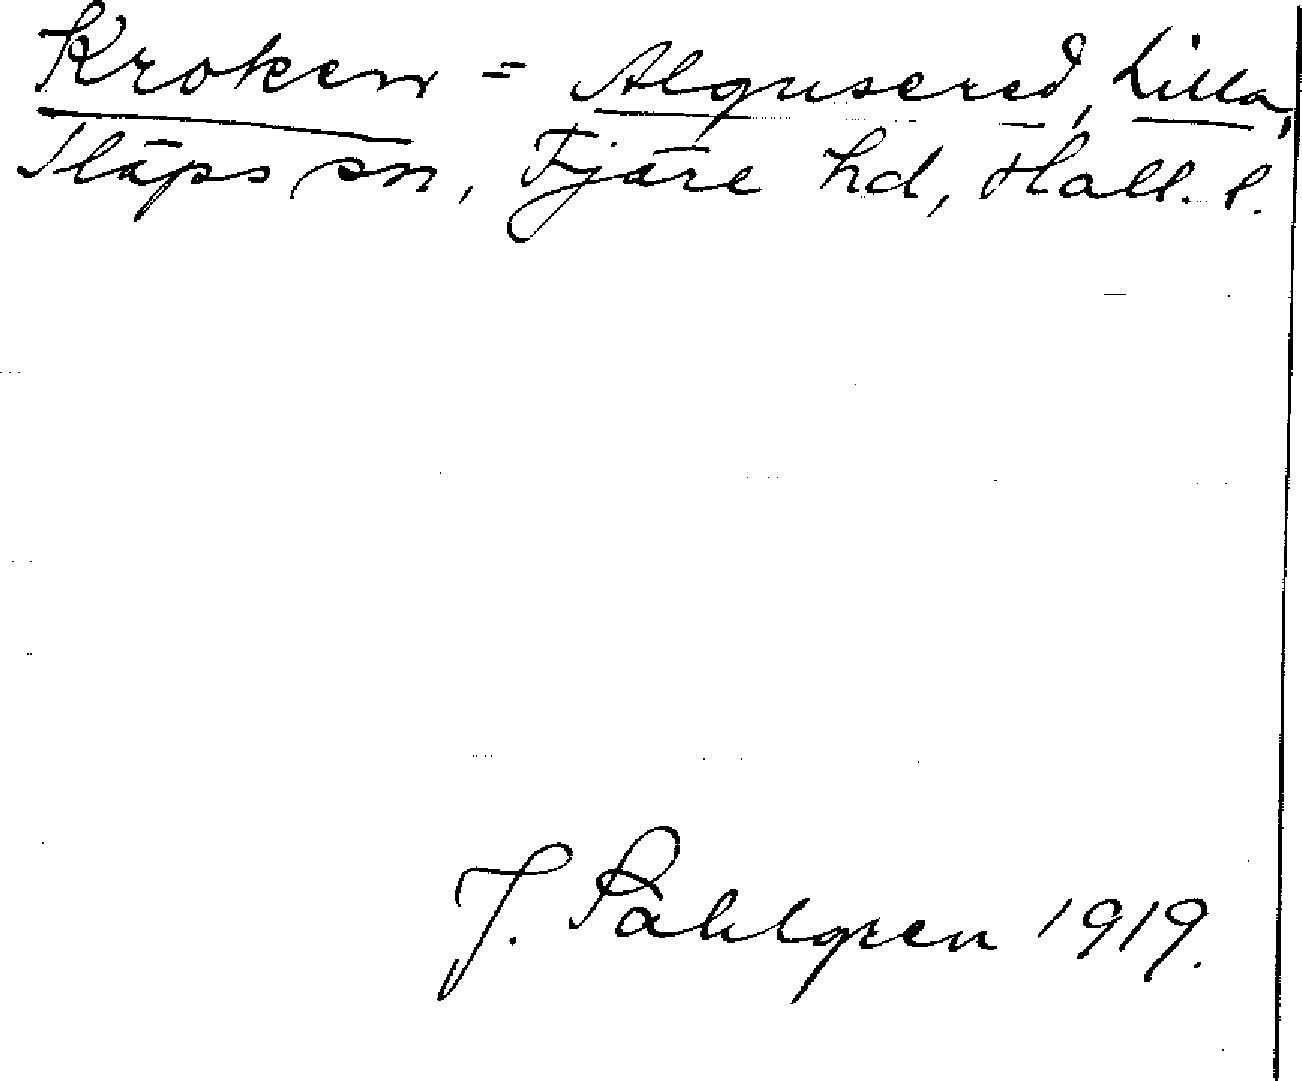 Kroken = Algusered, Lilla,
Släps sn, Fjäre hd, Hall. l.
J. Sahlgren 1919.